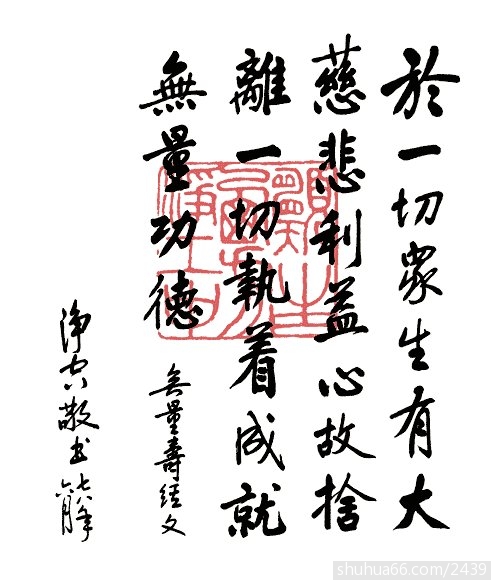 於一切眾生有大
慈悲利益心故捨
離一切執着成就
無量功德
無量壽經文
淨空敬書
願生西方淨土中
shuhua66.com/2439